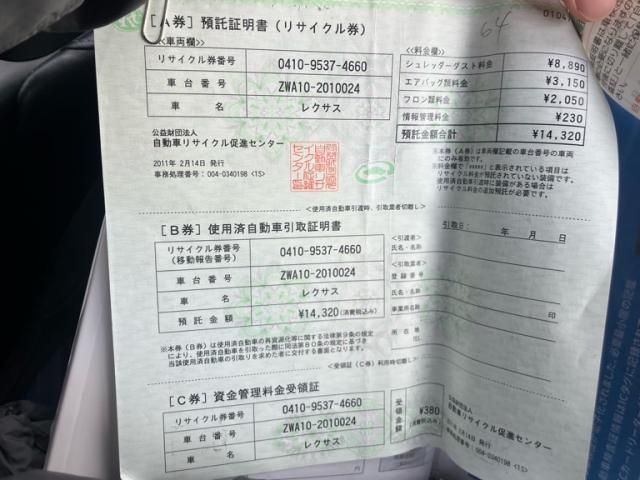 [A券] 預託証明書 (リサイクル券)
64
<車両欄>
リサイクル券番号 0410-9537-4660
車台番号 ZWA10-2010024
車名 レクサス
<料金欄>
シュレッダーダスト料金 ¥8,890
エアバッグ類料金 ¥3,150
フロン類料金 ¥2,050
情報管理料金 ¥230
預託金額合計 ¥14,320
公益財団法人
自動車リサイクル促進センター
2011年 2月14日 発行
事務処理番号: 004-0340198 <1S>
※本券(A券)は車両欄記載の車台番号の車両
にのみ有効です。
※料金欄で「*****」と表示されている項目は
リサイクル料金が預託されていない装備です。
使用済自動車引渡時に装備がある場合は
リサイクル料金の追加預託が必要です。
<使用済自動車引渡時、引取業者切離し>
[B券] 使用済自動車引取証明書
引取日 年 月 日
リサイクル券番号
(移動報告番号) 0410-9537-4660
車台番号 ZWA10-2010024
車名 レクサス
預託金額 ¥14,320(消費税込み)
<引渡者>
氏名・名称
<引取業者>
登録番号
氏名・名称
事業所名称 印
所在地
※本券(B券)は使用済自動車の再資源化等に関する法律第9条の規定
により、使用済自動車を引取った際に同法第80条の規定に基づき
当該使用済自動車の引取りを求めた者に交付する書面となります。
<受領証(C券)利用時切離し>
[C券] 資金管理料金受領証
リサイクル券番号 0410-9537-4660
車台番号 ZWA10-2010024
車名 レクサス
受領金額 ¥380
(消費税込み)
公益財団法人
自動車リサイクル促進センター
004-0340198 <1S>